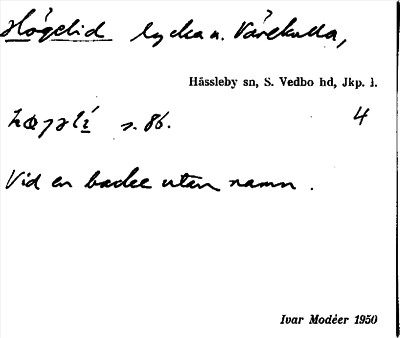 Högelid lycka u. Vårekulla,
Hässleby sn, S. Vedbo hd, Jkp. l.
s. 86. 4
Vid en backe utan namn.
Ivar Modéer 1950